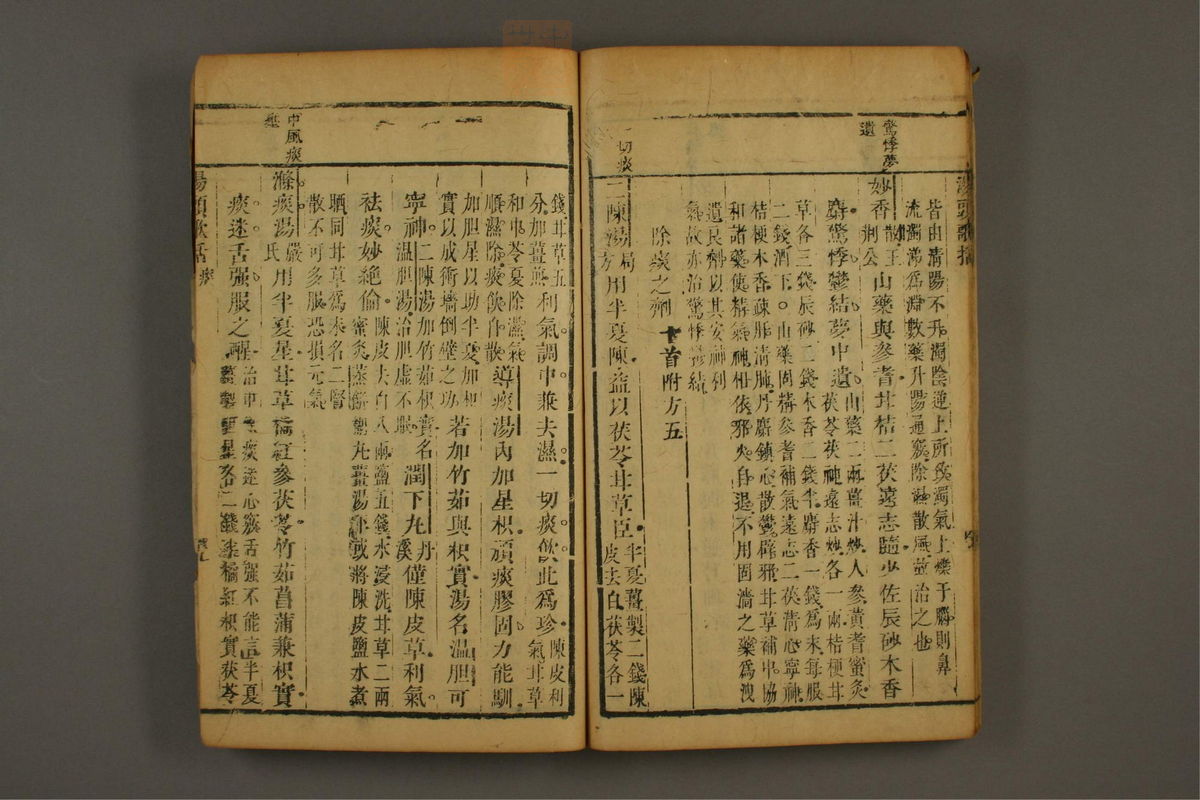 驚悸夢
遺
皆由清陽不升濁陰逆上所致濁氣上爍于腦則鼻
流濁涕爲淵數藥升陽通竅除濕散風故治之也
妙香散王荆公山藥與參耆甘桔二茯遠志臨少佐辰砂木香
麝驚悸鬱結夢中遺山藥二兩薑汁炒人參黃耆蜜炙
茯苓茯神遠志炒各一兩桔梗甘
草各三錢辰砂二錢木香二錢半麝香一錢爲末每服
二錢酒下○山藥固精參耆補氣遠志二茯清心寧神
桔梗木香疎肝清肺丹麝鎮心散鬱辟邪甘草補中協
和諸藥使精氣神相依邪火自退不用固濇之藥爲洩
遺良劑以其安神利
氣故亦治驚悸鬱結
除痰之劑 十首附方五
一切痰
二陳湯局方用半夏陳益以茯苓甘草臣半夏薑製二錢陳
皮去白茯苓各一
錢甘草五
分加薑煎利氣調中兼去濕一切痰飲此爲珍陳皮利
氣甘草
和中苓夏除濕氣
順濕除痰飲自散導痰湯內加星枳頑痰膠固力能馴
加胆星以助半夏加枳
實以成衝墻倒壁之功若加竹茹與枳實湯名温胆可
寧神二陳湯加竹茹枳實名
温胆湯治胆虛不眠潤下丸丹溪僅陳皮草利氣
祛痰妙絕倫陳皮去白八兩鹽五錢水浸洗甘草二兩
蜜炙蒸餅糊丸薑湯下或將陳皮鹽水煮
晒同甘草爲末名二賢
散不可多服恐損元氣
中風痰
滌痰湯嚴氏用半夏星甘草橘紅參茯苓竹茹菖蒲兼枳實
痰迷舌强服之醒治中風痰迷心竅舌强不能言半夏
薑製胆星各二錢橘紅枳實茯苓